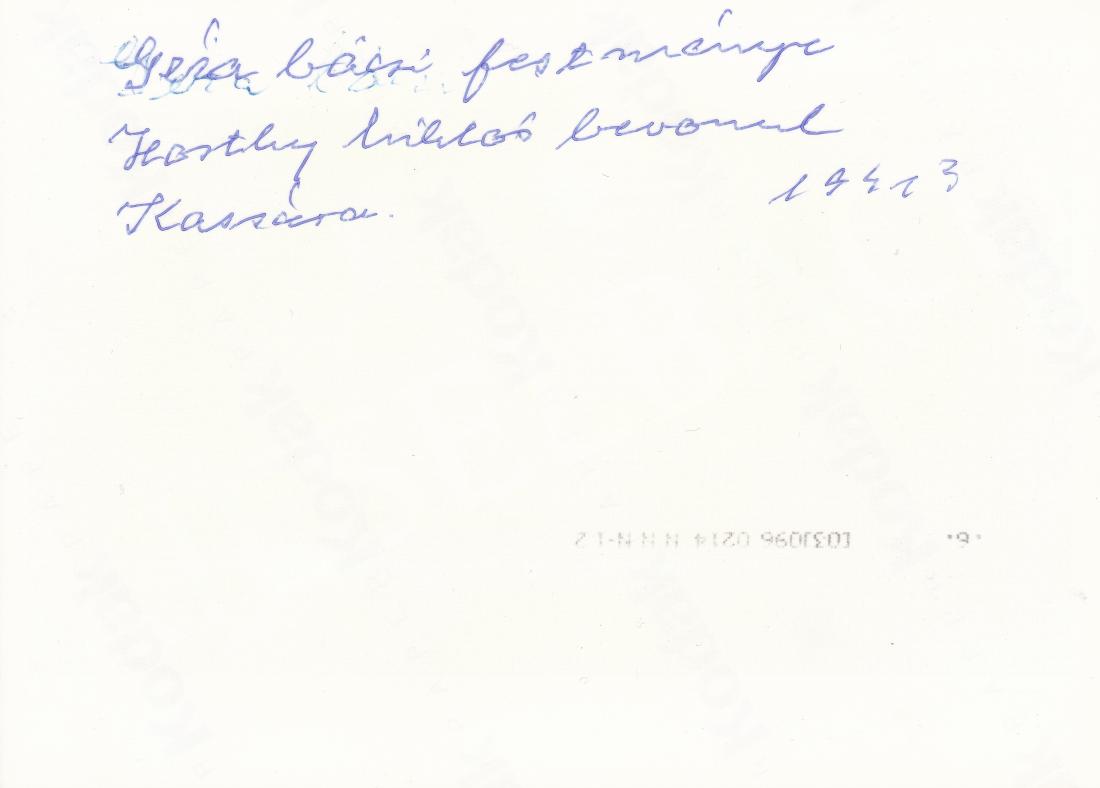 Géza bácsi festménye
Horthy Miklós bevonul
Kassára.
1941 3
[03]096 0214 N N N-12
.6.
Kodak